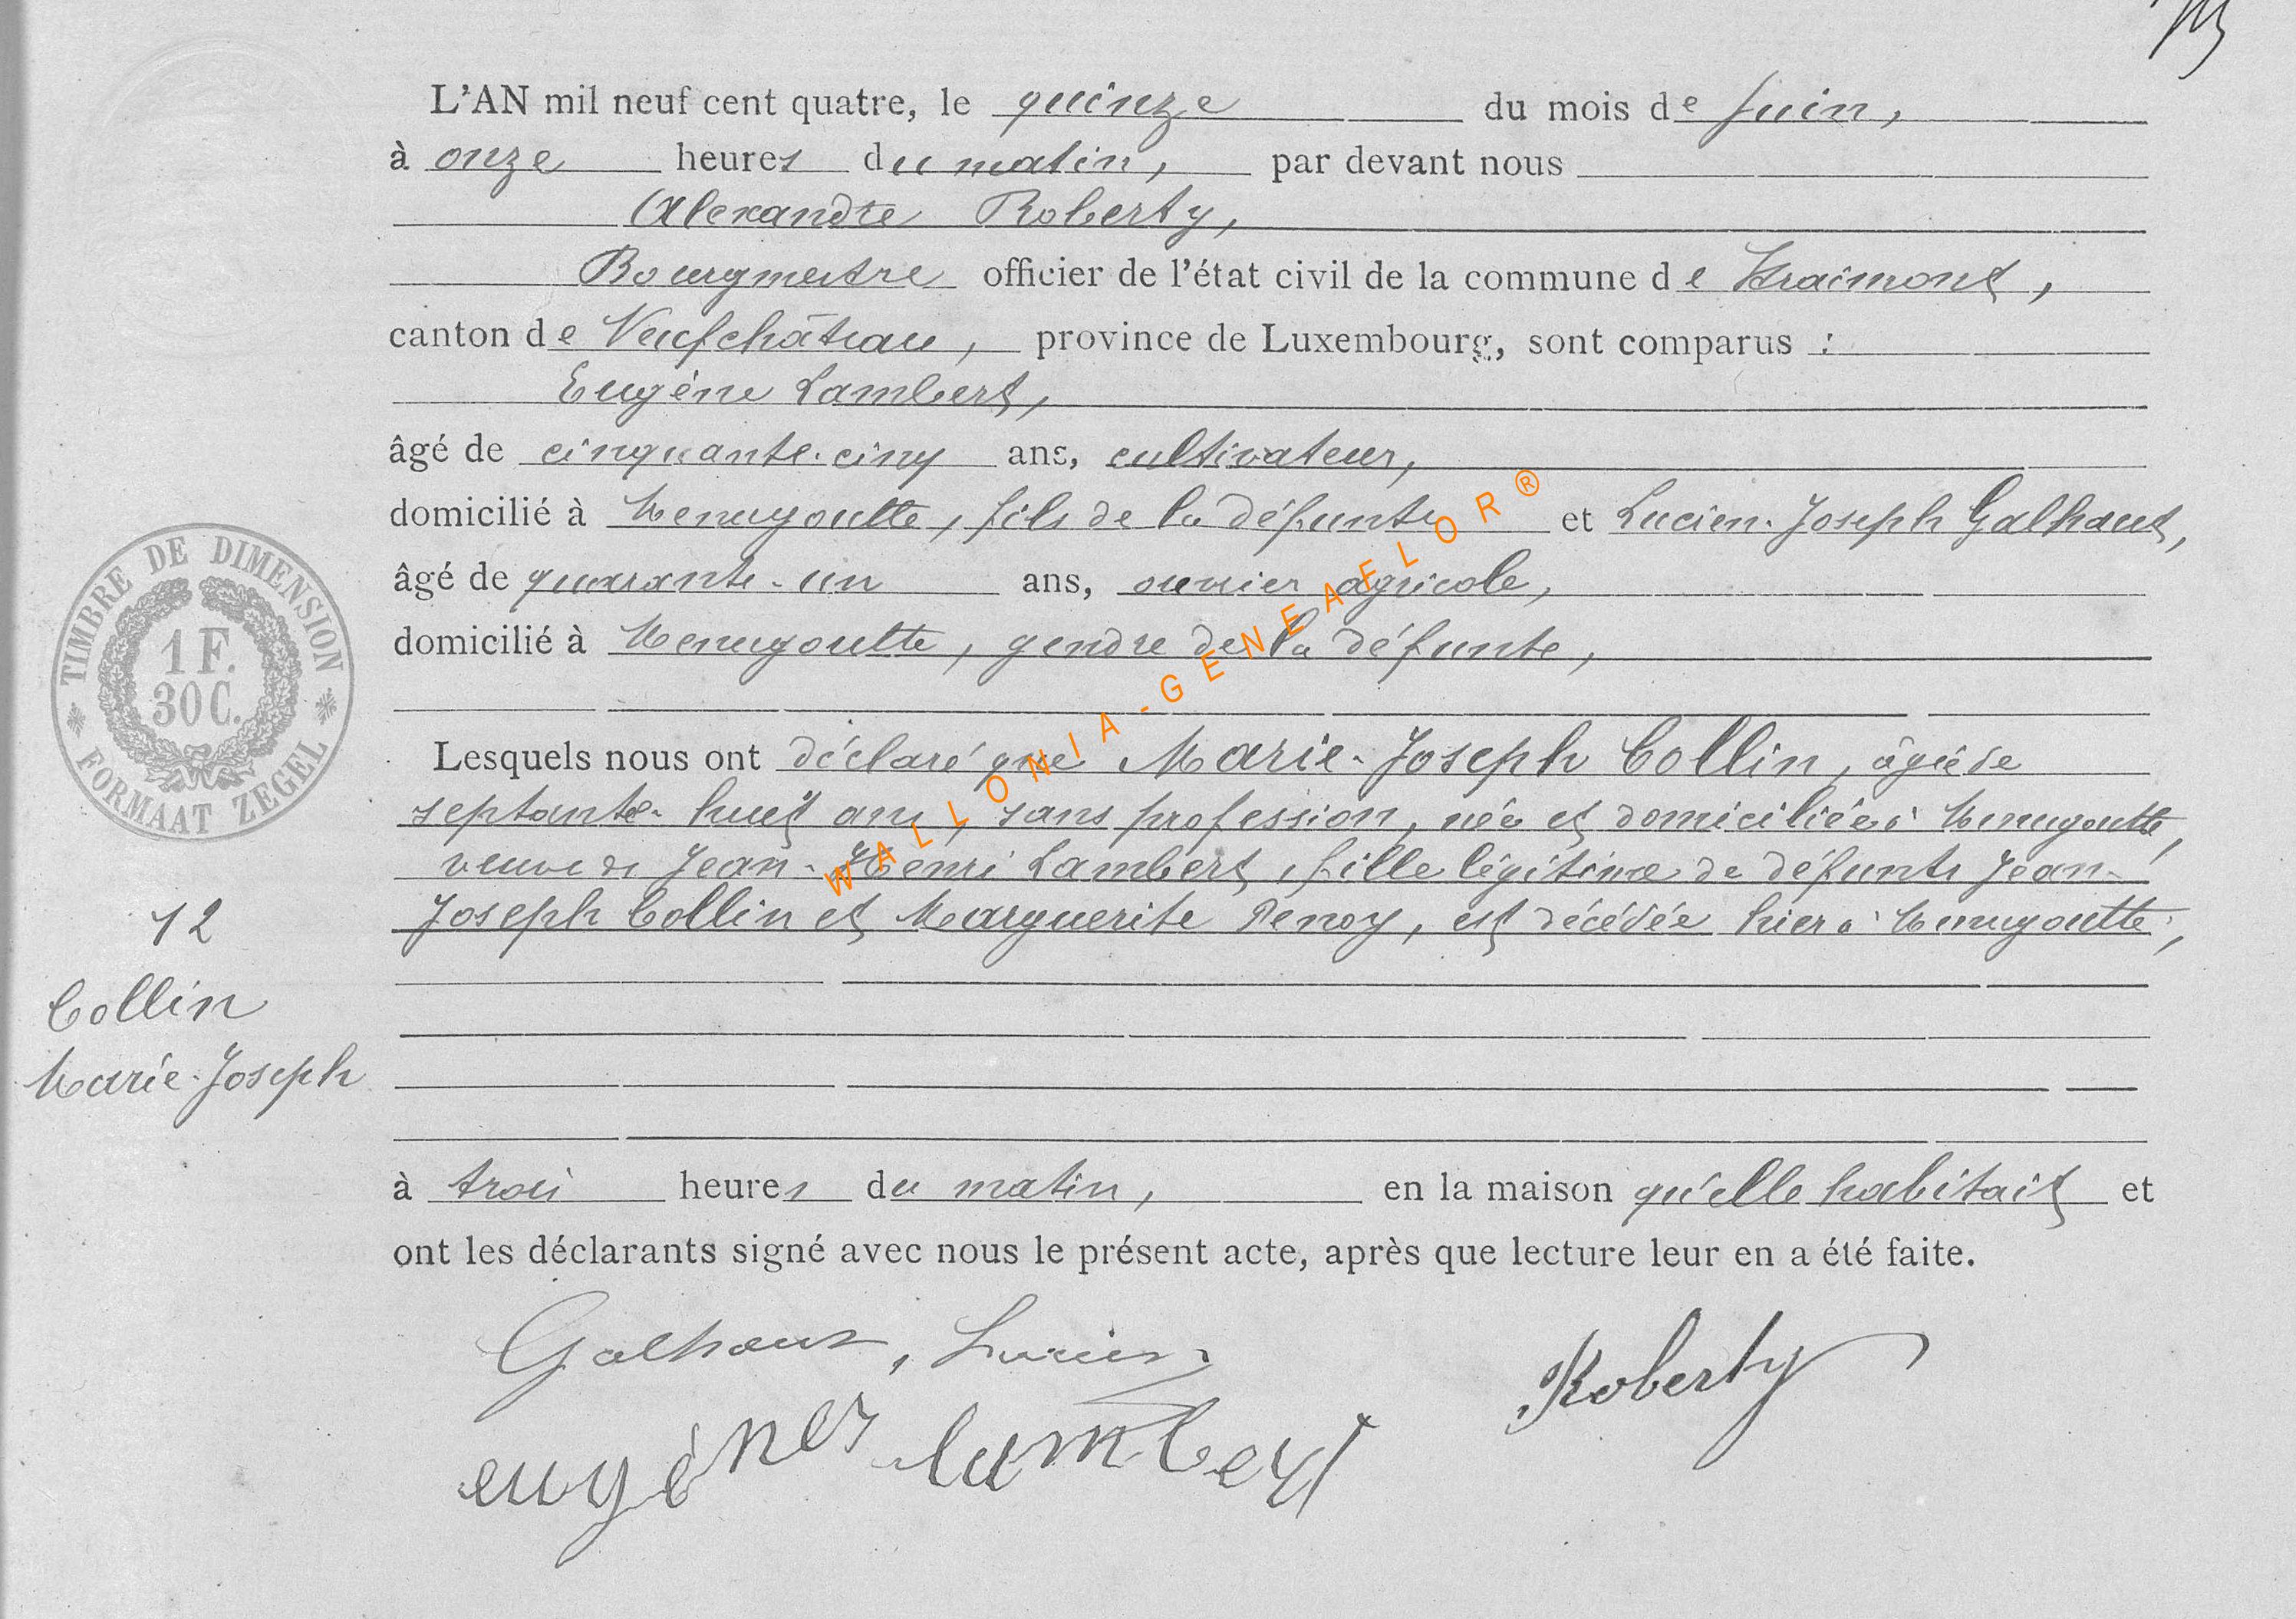 L'AN mil neuf cent quatre, le quinze du mois de Juin,
à onze heures du matin, par devant nous
Alexandre Roberty,
Bourgmestre officier de l'état civil de la commune de Straimont,
canton de Neufchâteau, province de Luxembourg, sont comparus :
Eugène Lambert,
âgé de cinquante-cinq ans, cultivateur,
domicilié à Menugoutte, fils de la défunte et Lucien-Joseph Galhaut,
âgé de quarante-un ans, ouvrier agricole,
domicilié à Menugoutte, gendre de la défunte,
Lesquels nous ont déclaré que Marie-Joseph Collin, âgée de
septante-huit ans, sans profession, née et domiciliée à Menugoutte,
veuve de Jean-Henri Lambert, fille légitime de défunts Jean-
Joseph Collin et Marguerite Penoy, est décédée hier à Menugoutte,
à trois heures du matin, en la maison qu'elle habitait et
ont les déclarants signé avec nous le présent acte, après que lecture leur en a été faite.
Galhaut, Lucien
Roberty
eugène lambert
12
Collin
Marie-Joseph
TIMBRE DE DIMENSION
1 F.
30 C.
FORMAAT ZEGEL
WALLONIA-GENEAFLOR®